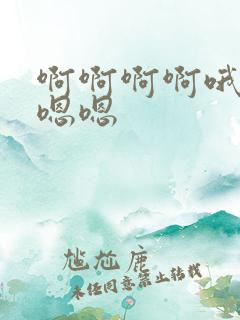 啊啊啊啊哦
嗯嗯
尴尬鹿
未经同意禁止转载